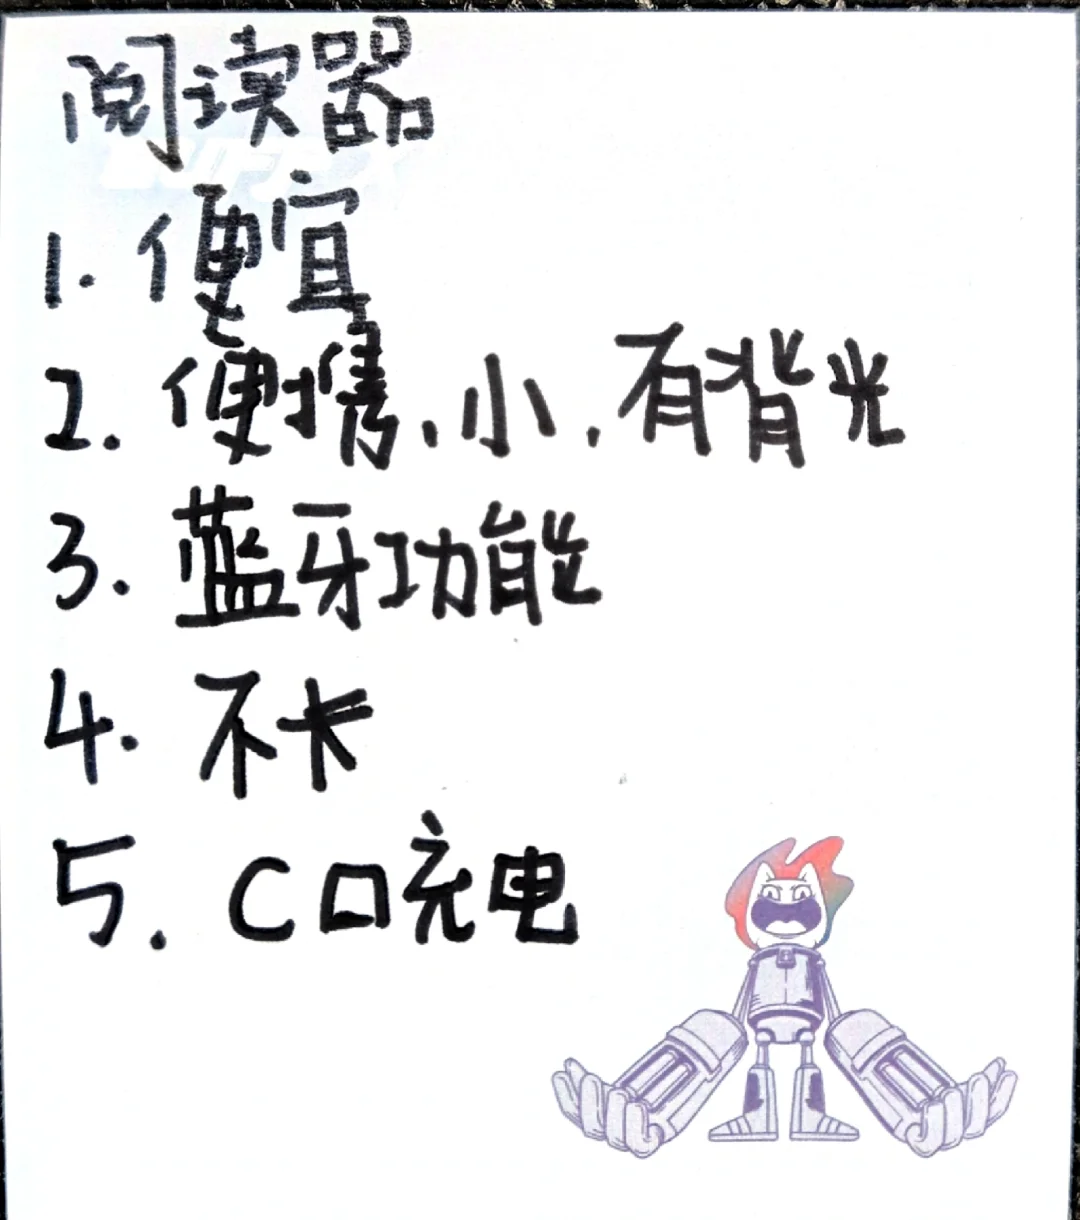 阅读器
1. 便宜
2. 便携、小、有背光
3. 蓝牙功能
4. 不卡
5. C口充电